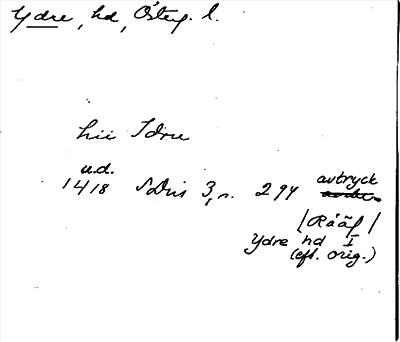 Ydre, hd, Österg. l.
hii Idru
u.d.
1418 SDns 3, n. 294 avtryck
|Rääf|
Ydre hd I
(efl. orig.)